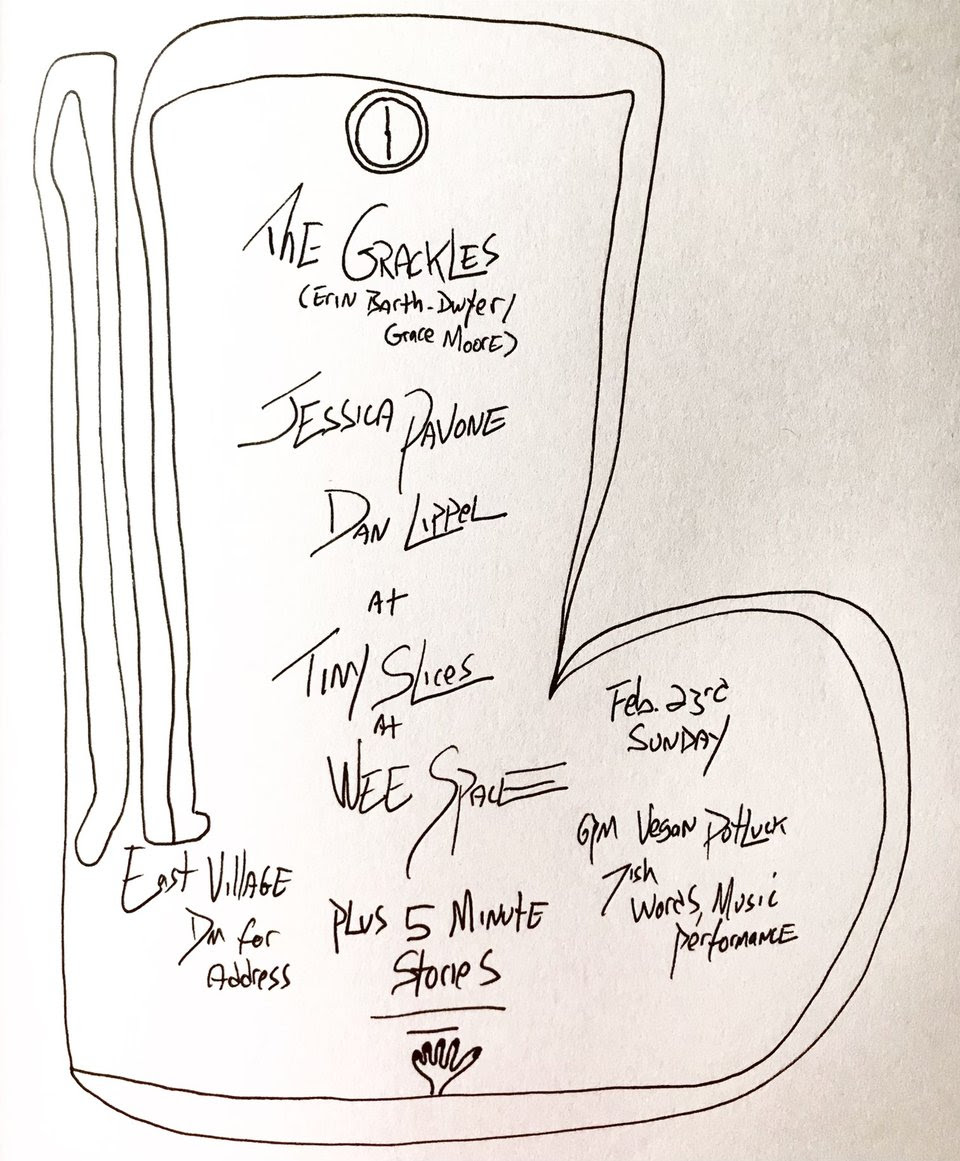 The Grackles
(Erin Barth-Dwyer/
Grace Moore)
Jessica Pavone
Dan Lippel
At
Tiny Slices
At
Wee Space
Plus 5 Minute
Stories
East Village
DM for
Address
Feb. 23rd
Sunday
6PM Vegan Potluck
7ish
Words, Music
Performance